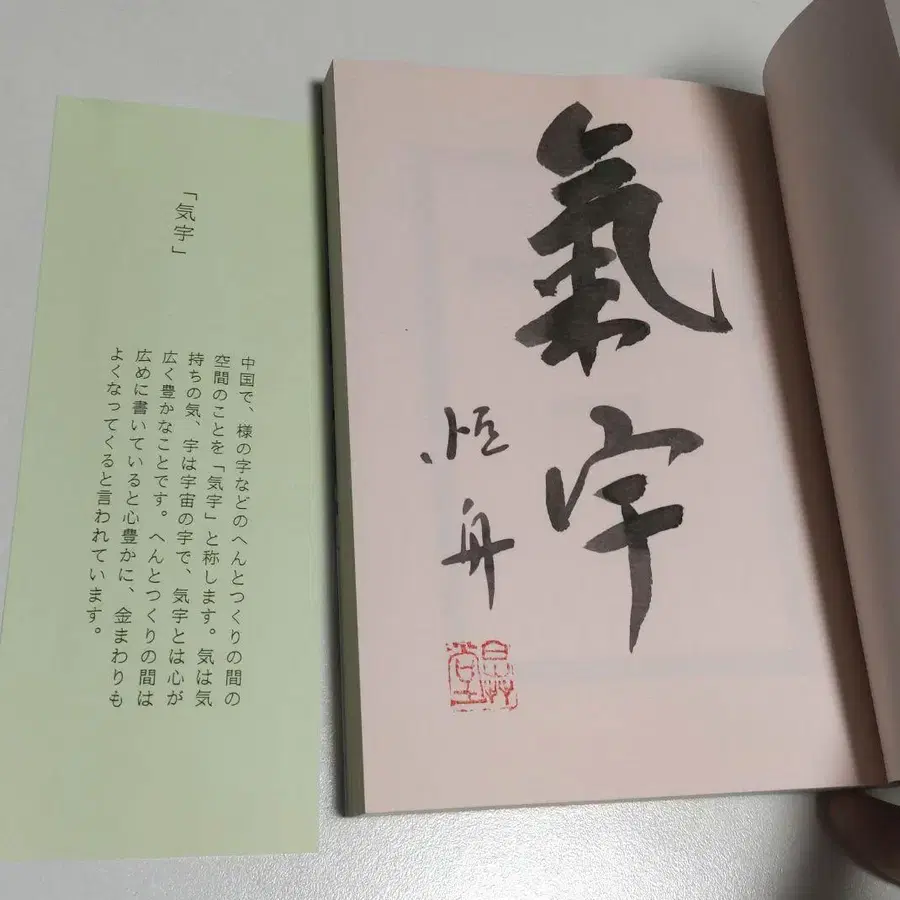 「気宇」
中国で、様の字などのへんとつくりの間の
空間のことを「気宇」と称します。気は気
持ちの気、宇は宇宙の宇で、気宇とは心が
広く豊かなことです。へんとつくりの間は
広めに書いていると心豊かに、金まわりも
よくなってくると言われています。
氣宇
恒舟